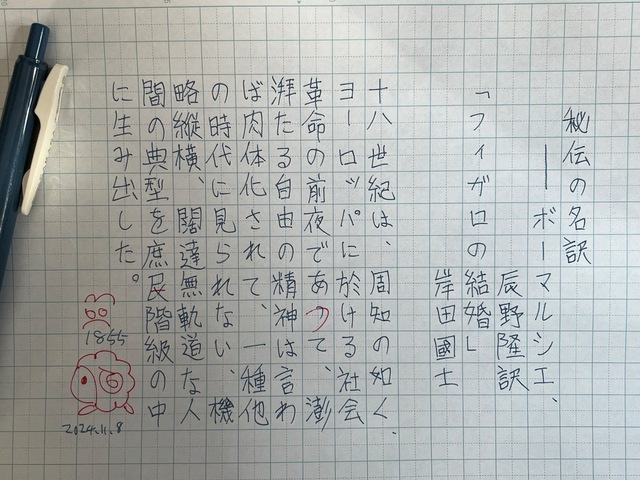 秘伝の名訳
――ボーマルシェ、
辰野隆訳
「フィガロの結婚」
岸田國士
十八世紀は、周知の如く、
ヨーロッパに於ける社会
革命の前夜であつて、澎
湃たる自由の精神は言わ
ば肉体化されて、一種他
の時代に見られない、機
略縦横、闊達無軌道な人
間の典型を庶民階級の中
に生み出した。
1855
2024.11.8